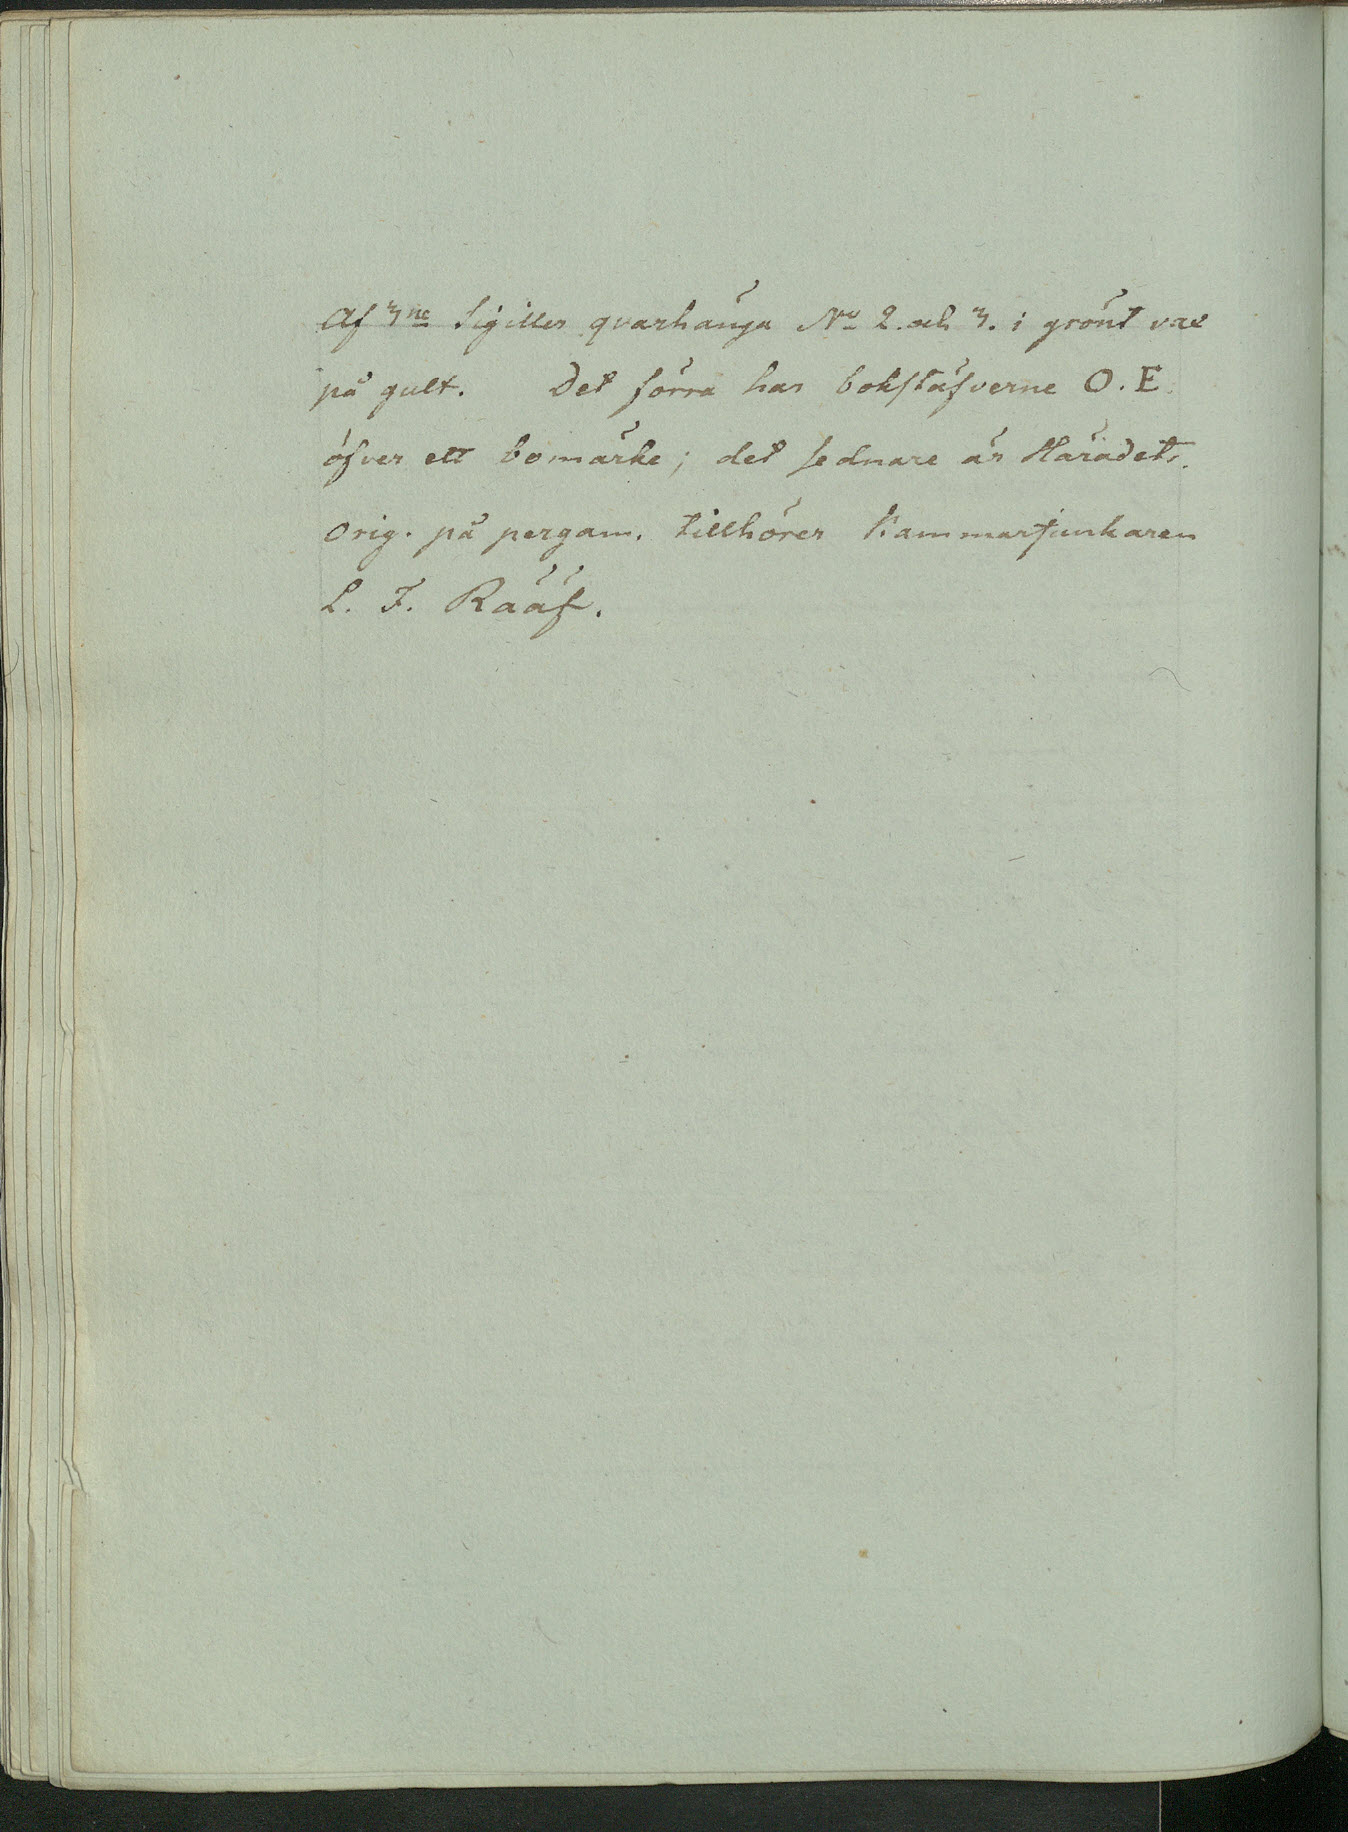 Af 3ne Sigiller qvarhänga No 2. och 3. i grönt vax
på gult. Det förra har bokstäfverne O.E.
öfver ett bomärke; det sednare är Häradets.
Orig. på pergam. tillhörer Kammarjunkaren
L. F. Rääf.